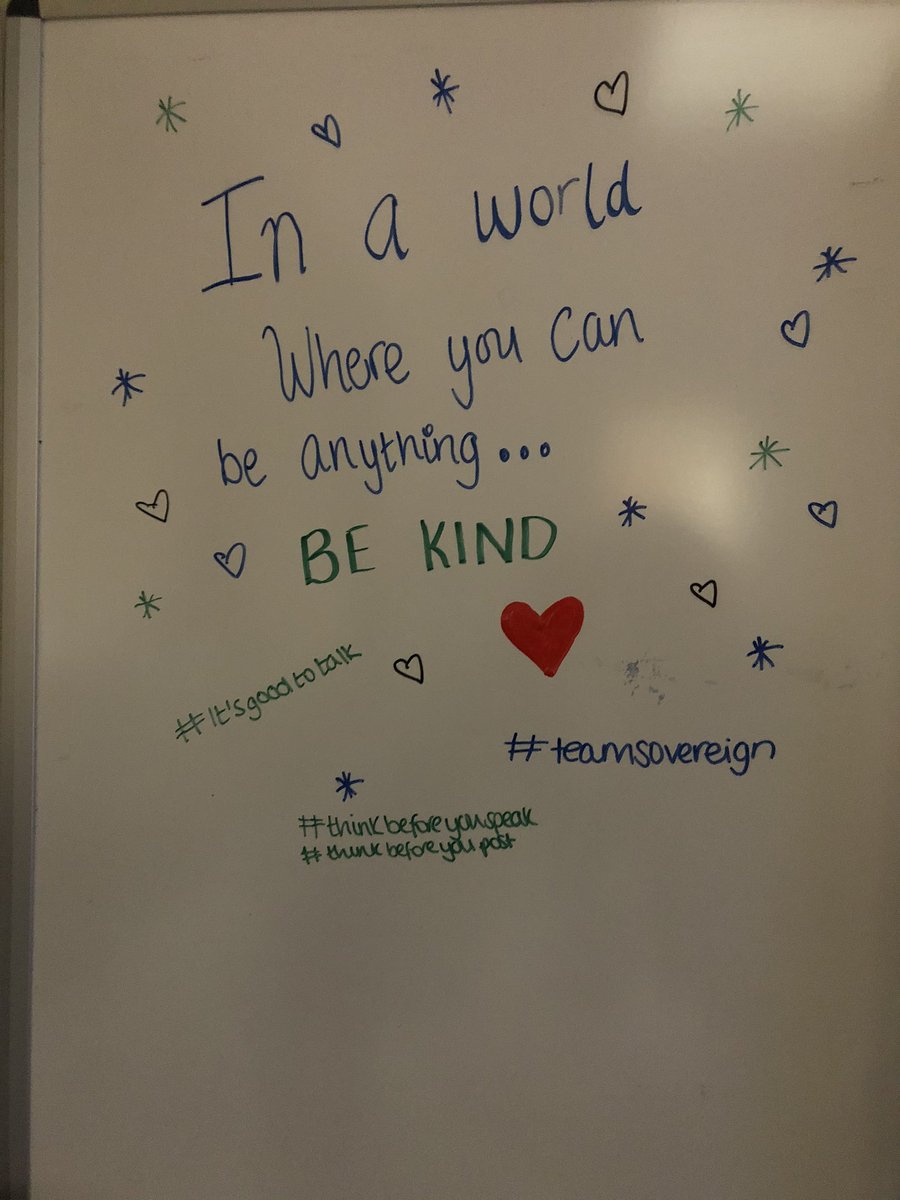 In a world
Where you can
be anything...
BE KIND
#It'sgoodtotalk
#teamsovereign
#thinkbeforeyouspeak
#thinkbeforeyoupost